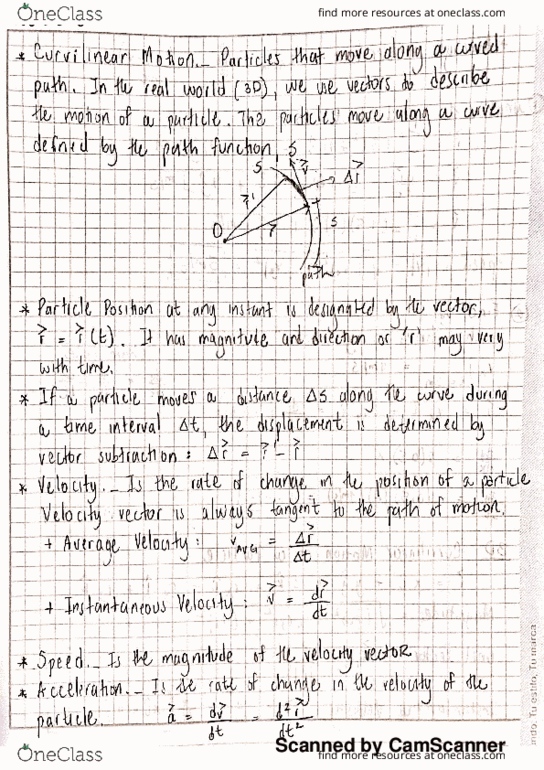 OneClass
find more resources at oneclass.com
* Curvilinear Motion._ Particles that move along a curved
path. In the real world (3D), we use vectors to describe
the motion of a particle. The particles move along a curve
defined by the path function, S
S
v⃗
Δr⃗
r⃗'
O
r⃗
s
path
* Particle Position at any instant is designated by the vector,
r⃗ = r⃗(t). It has magnitude and direction or 'r' may very
with time.
* If a particle moves a distance ΔS along the curve during
a time interval Δt, the displacement is determined by
vector subtraction: Δr⃗ = r⃗' - r⃗
* Velocity._ Is the rate of change in the position of a particle
Velocity vector is always tangent to the path of motion.
+ Average Velocity: v⃗AVG = Δr⃗/Δt
+ Instantaneous Velocity: v⃗ = dr⃗/dt
* Speed._ Is the magnitude of the velocity vector
* Acceleration._ Is the rate of change in the velocity of the
particle. a⃗ = dv⃗/dt = d²r⃗/dt²
Scanned by CamScanner
OneClass
find more resources at oneclass.com
Tu estilo, Tu marca